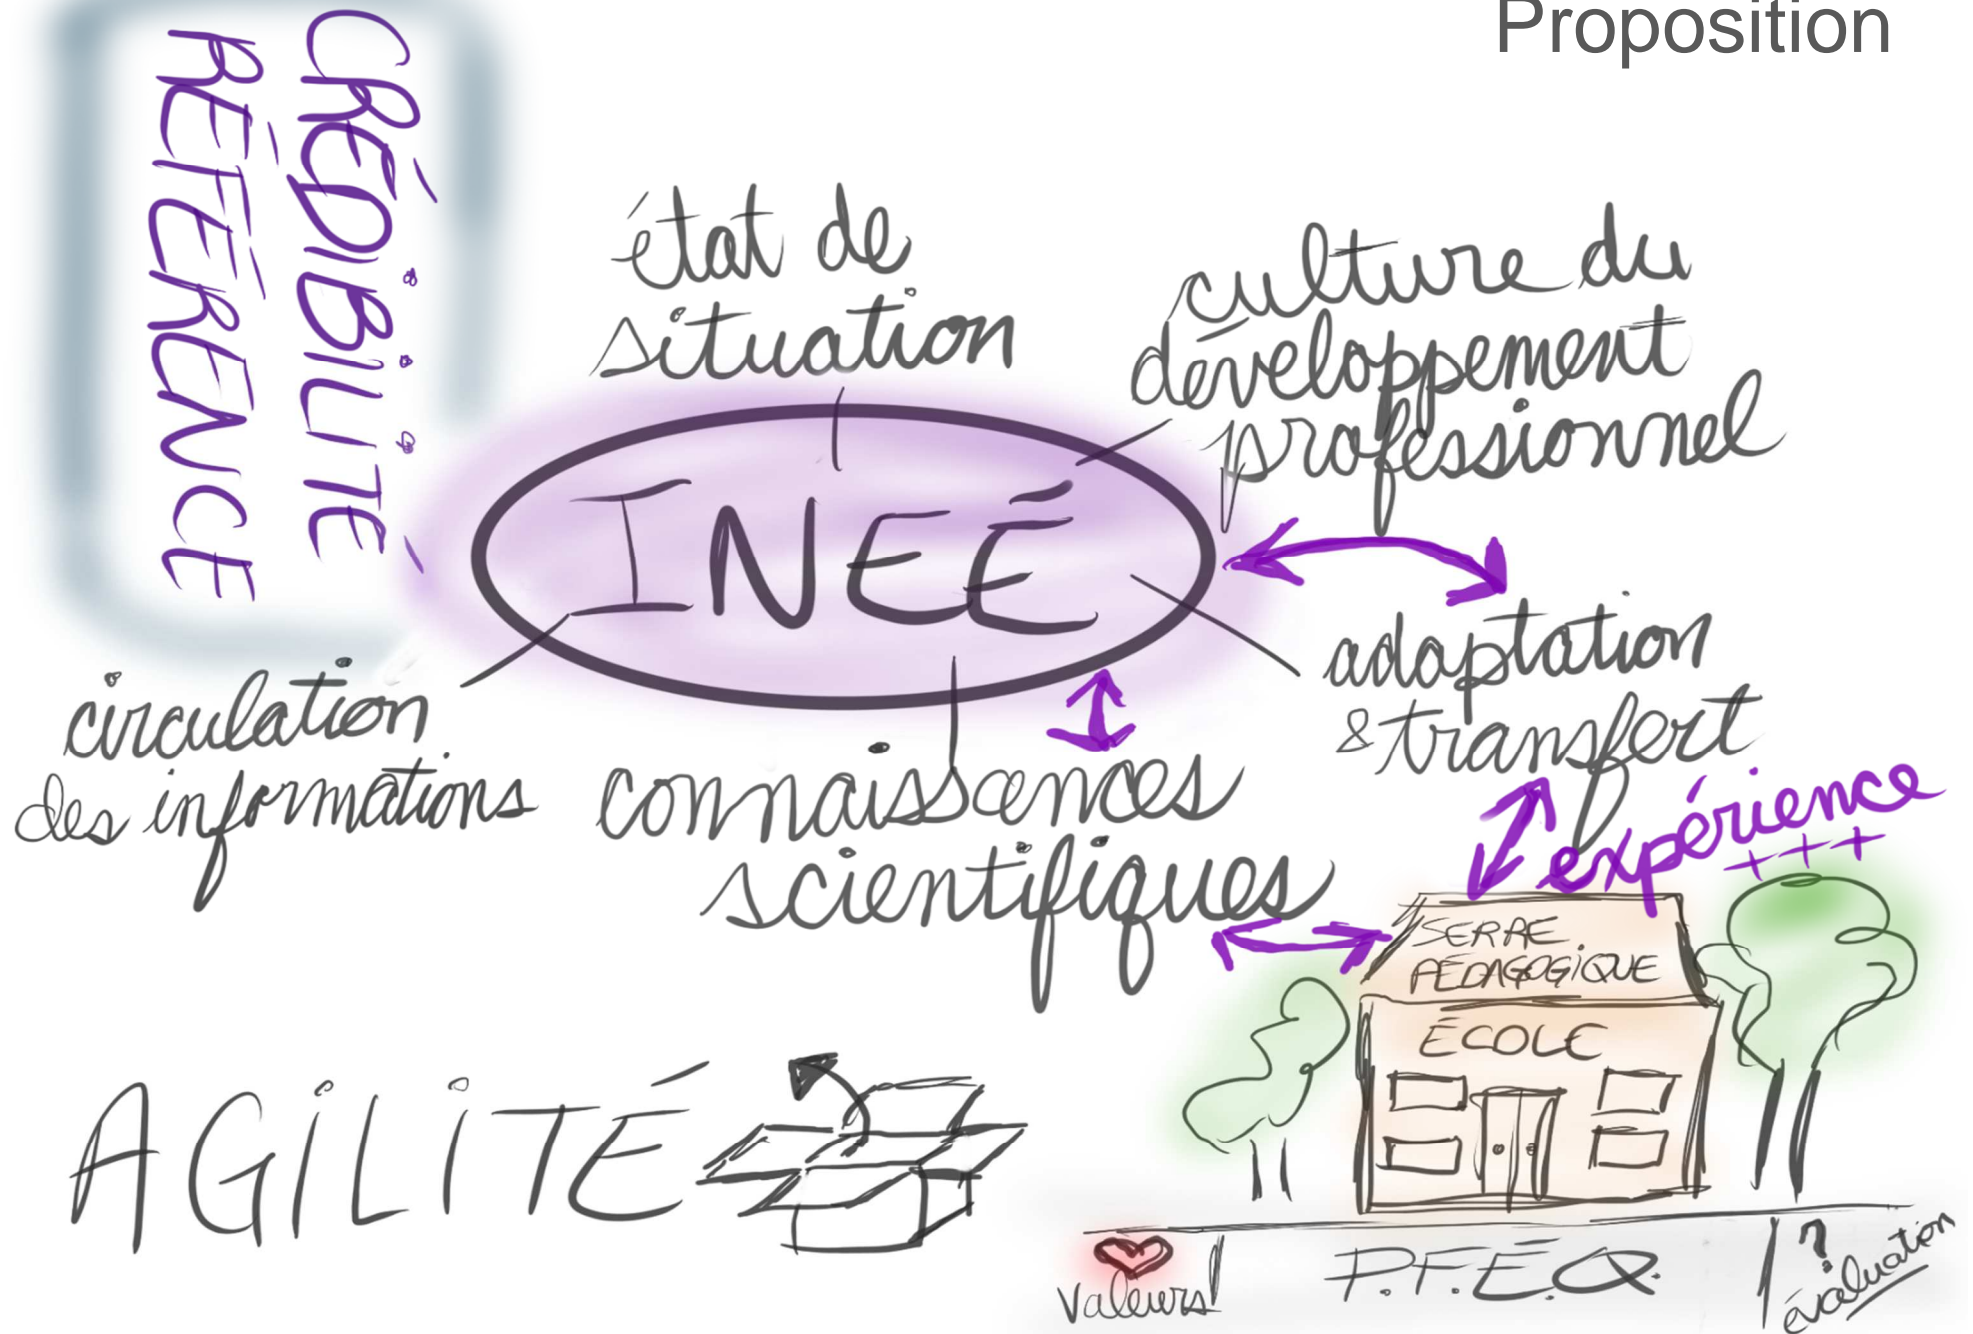 Proposition
CRÉDIBILITÉ
RÉFÉRENCE
état de
situation
culture du
développement
professionnel
INEÉ
adaptation
& transfert
circulation
des informations
connaissances
scientifiques
expérience
+++
SERRE
PÉDAGOGIQUE
ÉCOLE
AGILITÉ
valeurs
P.F.É.Q.
?
évaluation